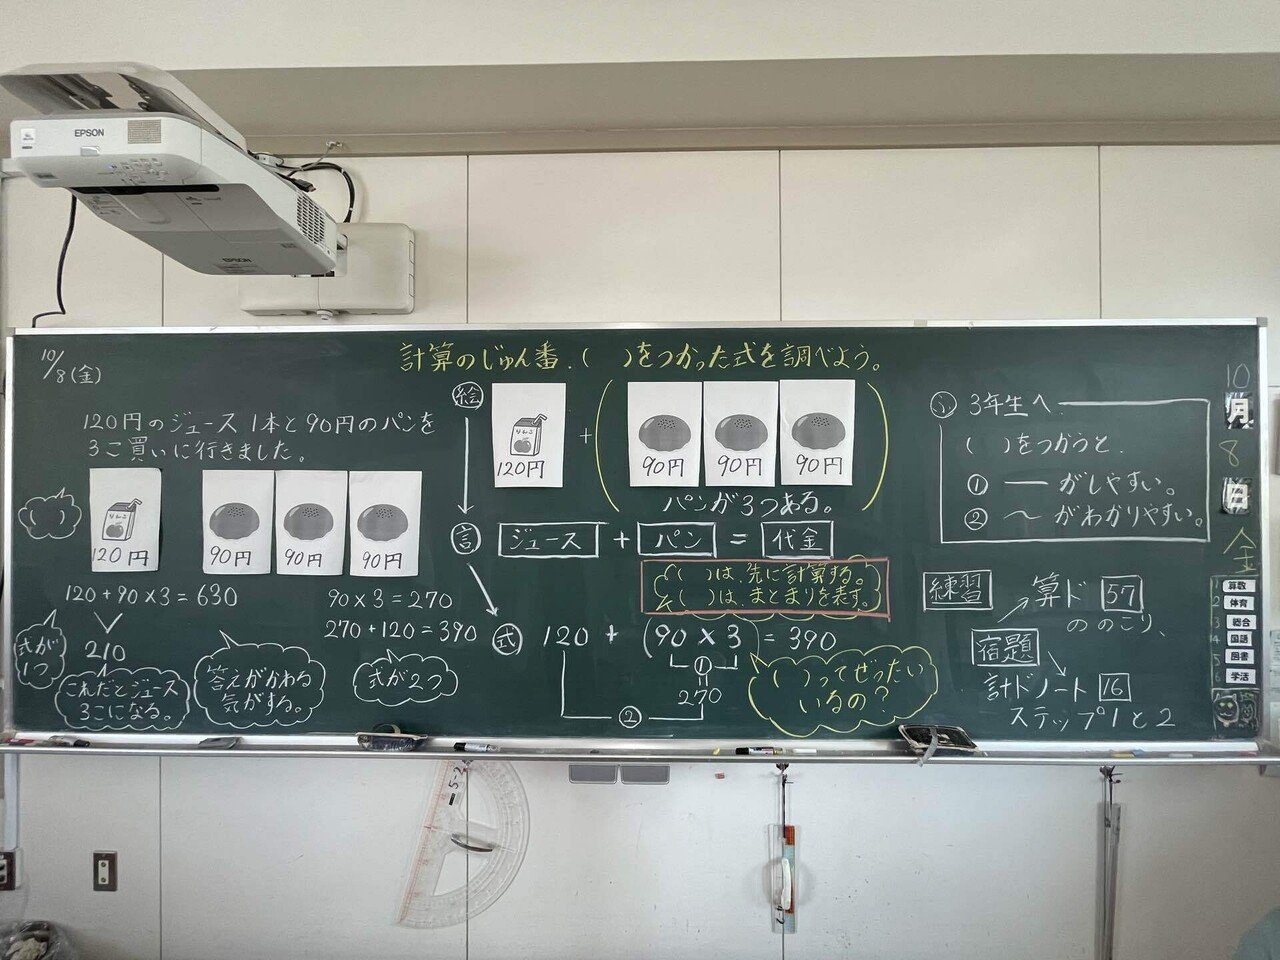 EPSON
EPSON
10/8(金)
計算のじゅん番、( )をつかった式を調べよう。
120円のジュース1本と90円のパンを
3こ買いに行きました。
りんご
120円
90円
90円
90円
( )
120+90×3=630
210
式が
1つ
これだとジュース
3こになる。
答えがかわる
気がする。
90×3=270
270+120=390
式が2つ
絵
りんご
120円
+
90円
90円
90円
パンが3つある。
言
ジュース + パン = 代金
( )は、先に計算する。
( )は、まとまりを表す。
式
120 + (90×3) = 390
①
270
②
( )ってぜったい
いるの?
ふ 3年生へ
( )をつかうと、
① ― がしやすい。
② 〜 がわかりやすい。
練習
算ド 57
ののこり、
宿題
計ドノート 16
ステップ1と2
10
月
8
日
金
1 算数
2 体育
3 総合
4 国語
5 図書
6 学活
5-2